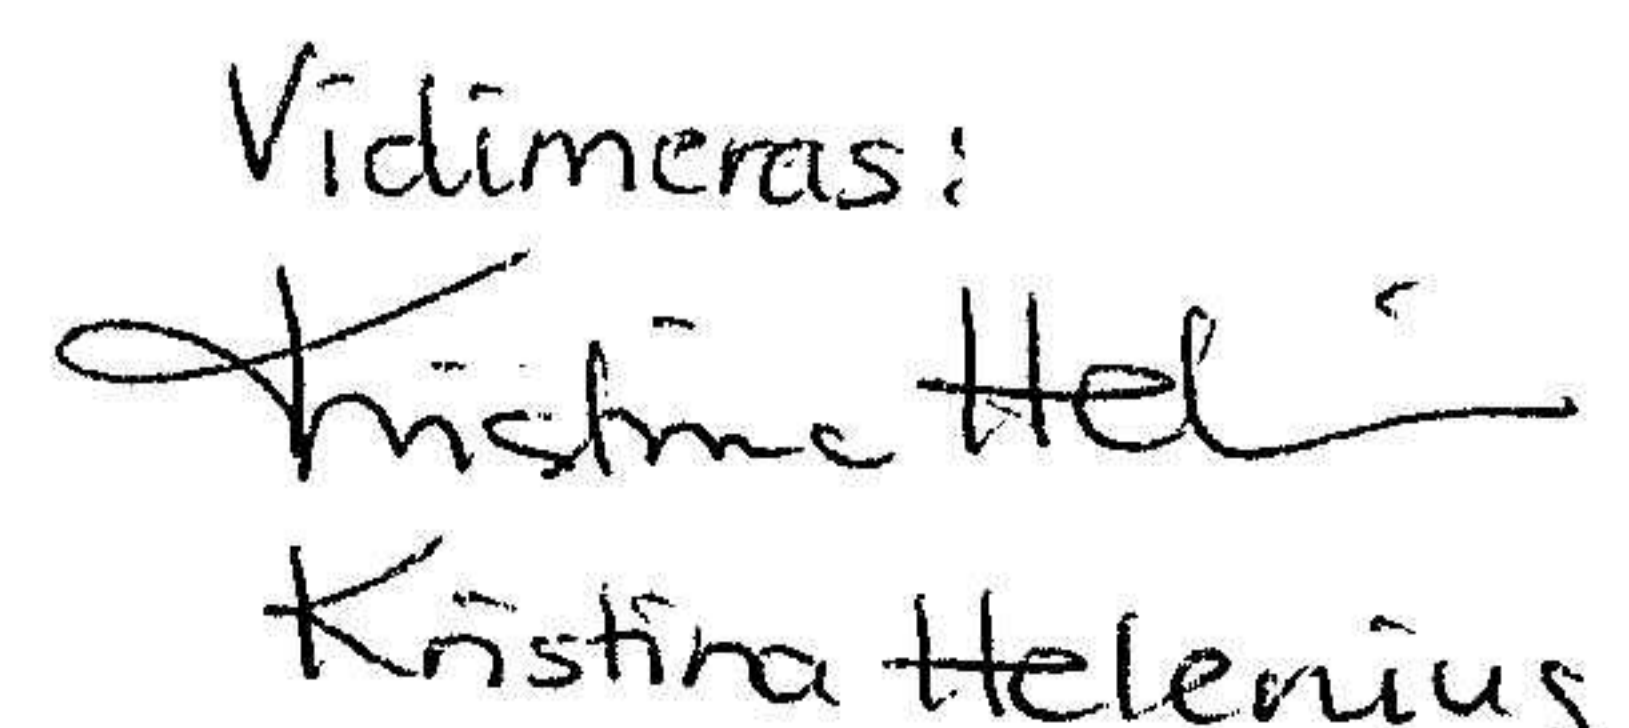 Vidimeras:
Kristina Hel
Kristina Helenius